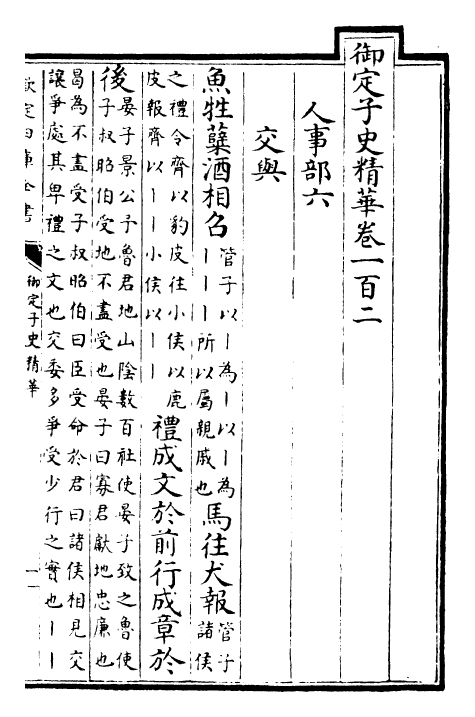 御定子史精華卷一百二
人事部六
交與
魚牲蘖酒相召管子以丨為丨以丨為丨丨丨所以屬親戚也馬往犬報管子諸侯
之禮令齊以豹皮往小侯以鹿皮報齊以丨丨小侯以丨丨禮成文於前行成章於
後晏子景公予魯君地山陰數百社使晏子致之魯使子叔昭伯受地不盡受也晏子曰寡君獻地忠廉也
曷為不盡受子叔昭伯曰臣受命於君曰諸侯相見交讓爭處其卑禮之文也交委多爭受少行之實也丨丨
欽定四庫全書
御定子史精華